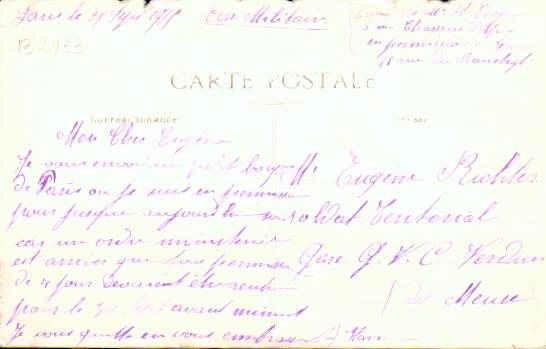 Paris le 29 Sept 1915
Cte Militaire
5 me Chasseur
en permission
18 rue du Ranelagh
B2933
CARTE POSTALE
Correspondance
Mon Cher Eugène
Je vous envoi un petit bonjour
de Paris ou je suis en permission
pour jusque aujourd'hui
car un ordre ministerie
est arriver que tous permission
de 4 jours devaient être rentré
pour le 30 Sept avant minuit
Je vous quitte en vous embrassant
Mr Eugène Richter
soldat Territorial
Gare G. V. C Verdun
(Meuse)